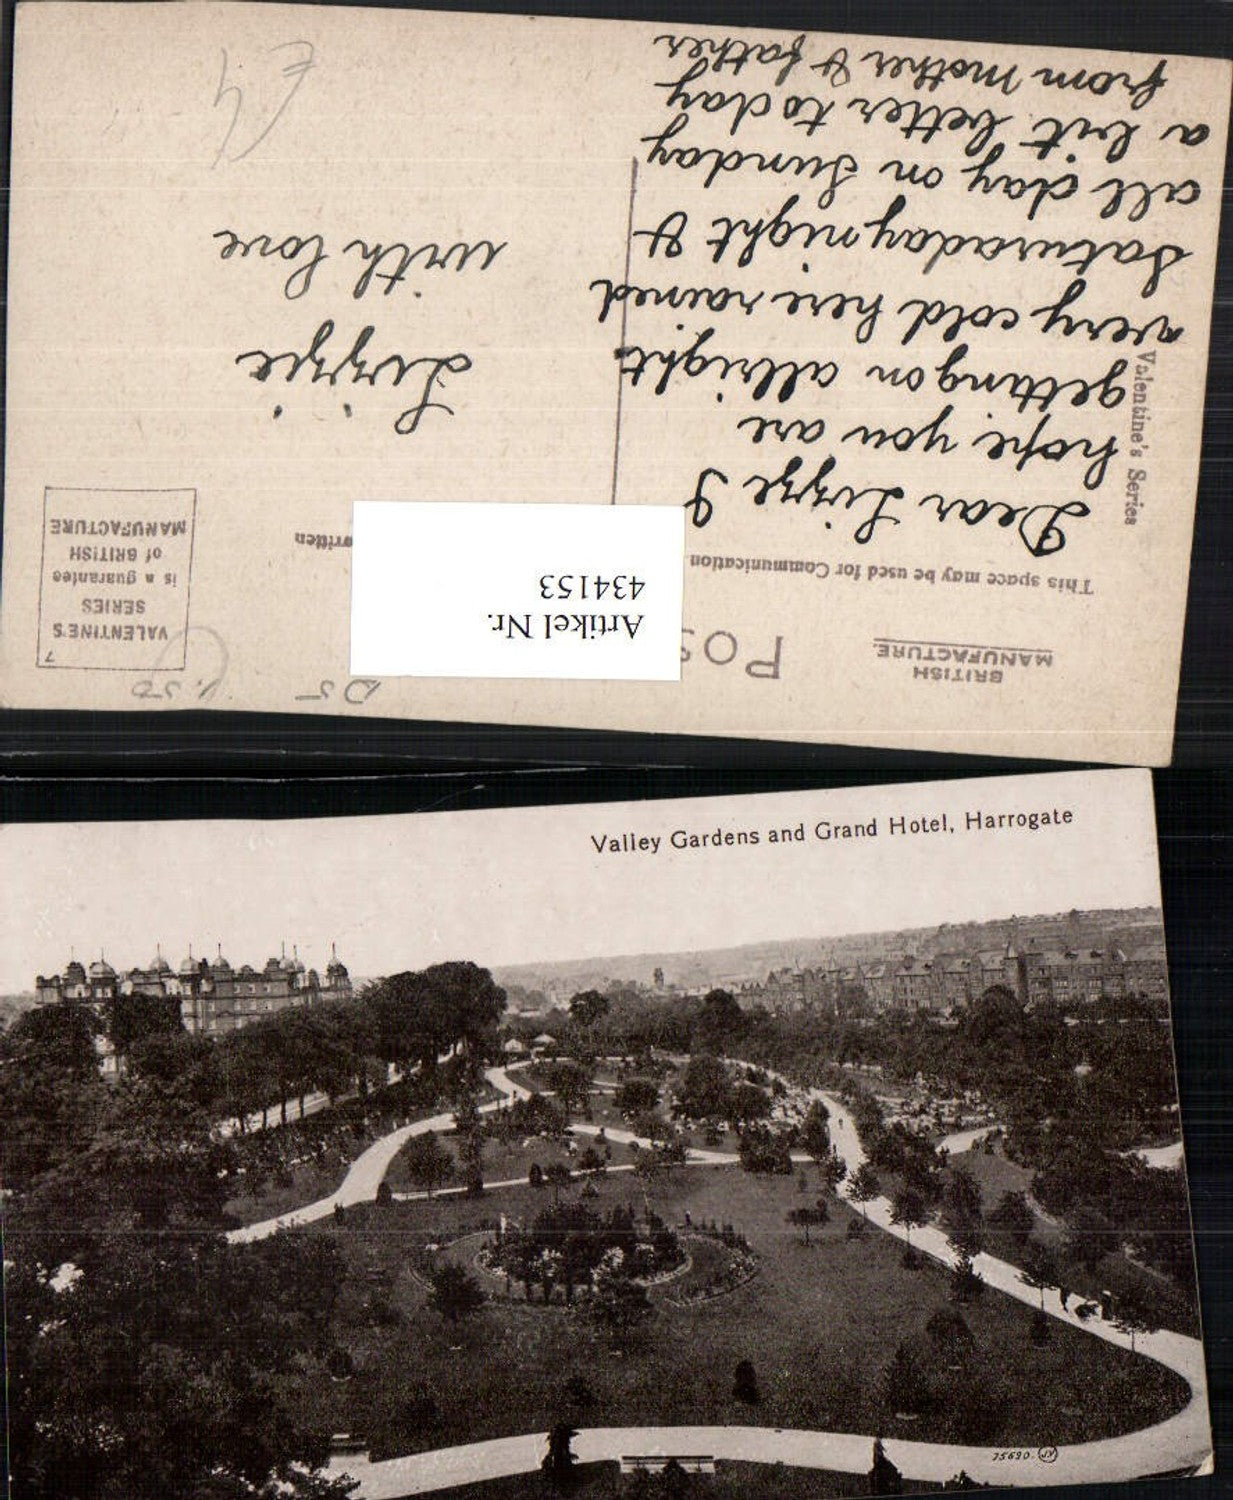 BRITISH
MANUFACTURE.
POS
VALENTINE'S
SERIES
is a guarantee
of BRITISH
MANUFACTURE
7
Artikel Nr.
434153
This space may be used for Communication
written
Valentine's Series
Dear Lizzie I
hope you are
getting on allright
very cold here rained
Saturaday night &
all day on Sunday
a bit better to day
from mother & father
Lizzie
with love
£4
DS
Valley Gardens and Grand Hotel, Harrogate
75690. JV